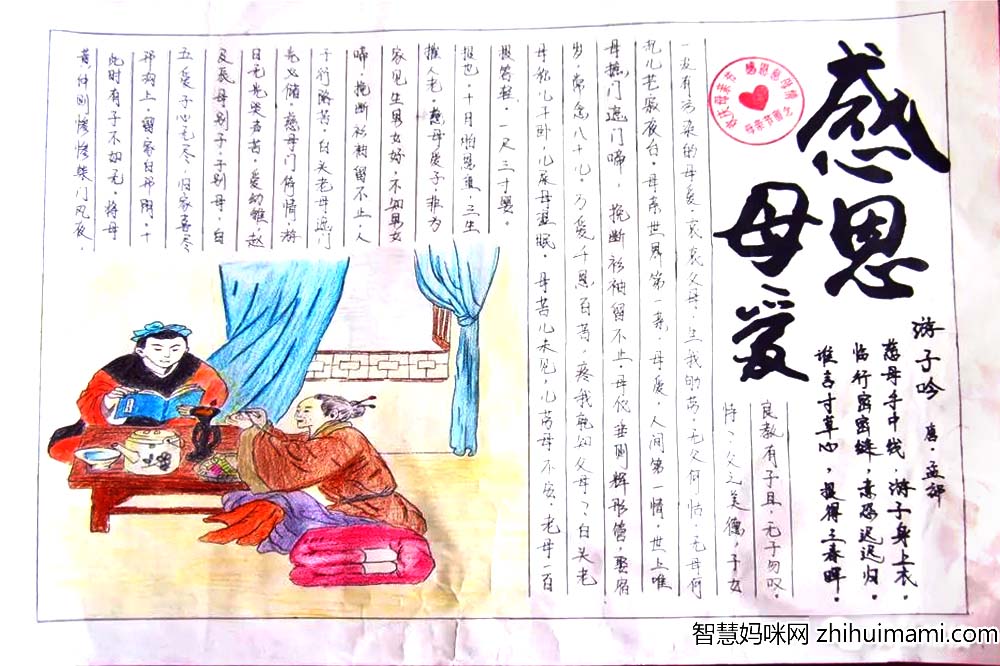 感恩
母爱
游子吟 唐·孟郊
慈母手中线,游子身上衣。
临行密密缝,意恐迟迟归。
谁言寸草心,报得三春晖。
良教有子且,无子勿叹
恃、父之美德,子女
一没有污染的母爱。哀哀父母,生我劬劳,无父何怙,无母何
母亲世界第一亲,母爱,人间第一情,世上唯
遮门啼,挽断衫袖留不止。母仪垂则辉彤管,婺宿
岁,常念八十儿。万爱千恩百苦,疼我孰知父母?白头老
儿干卧,儿尿母湿眠。母苦儿未见,儿劳母不安。老母一百
报答轻。一尺三寸婴。
报也。十月胎恩重,三生
推人老。慈母爱子,非为
家见生男女好,不知男女
啼,挽断衫袖留不止。人
子行路苦。白头老母遮门
慈母门倚情,游
日无光哭声苦。爱幼雏,赵
及长母别子,子别母,白
五爱子心无尽,归家喜
此时有子不如无。将母
黄,仲则惨惨柴门风夜,
智慧妈咪网 zhihuimami.com